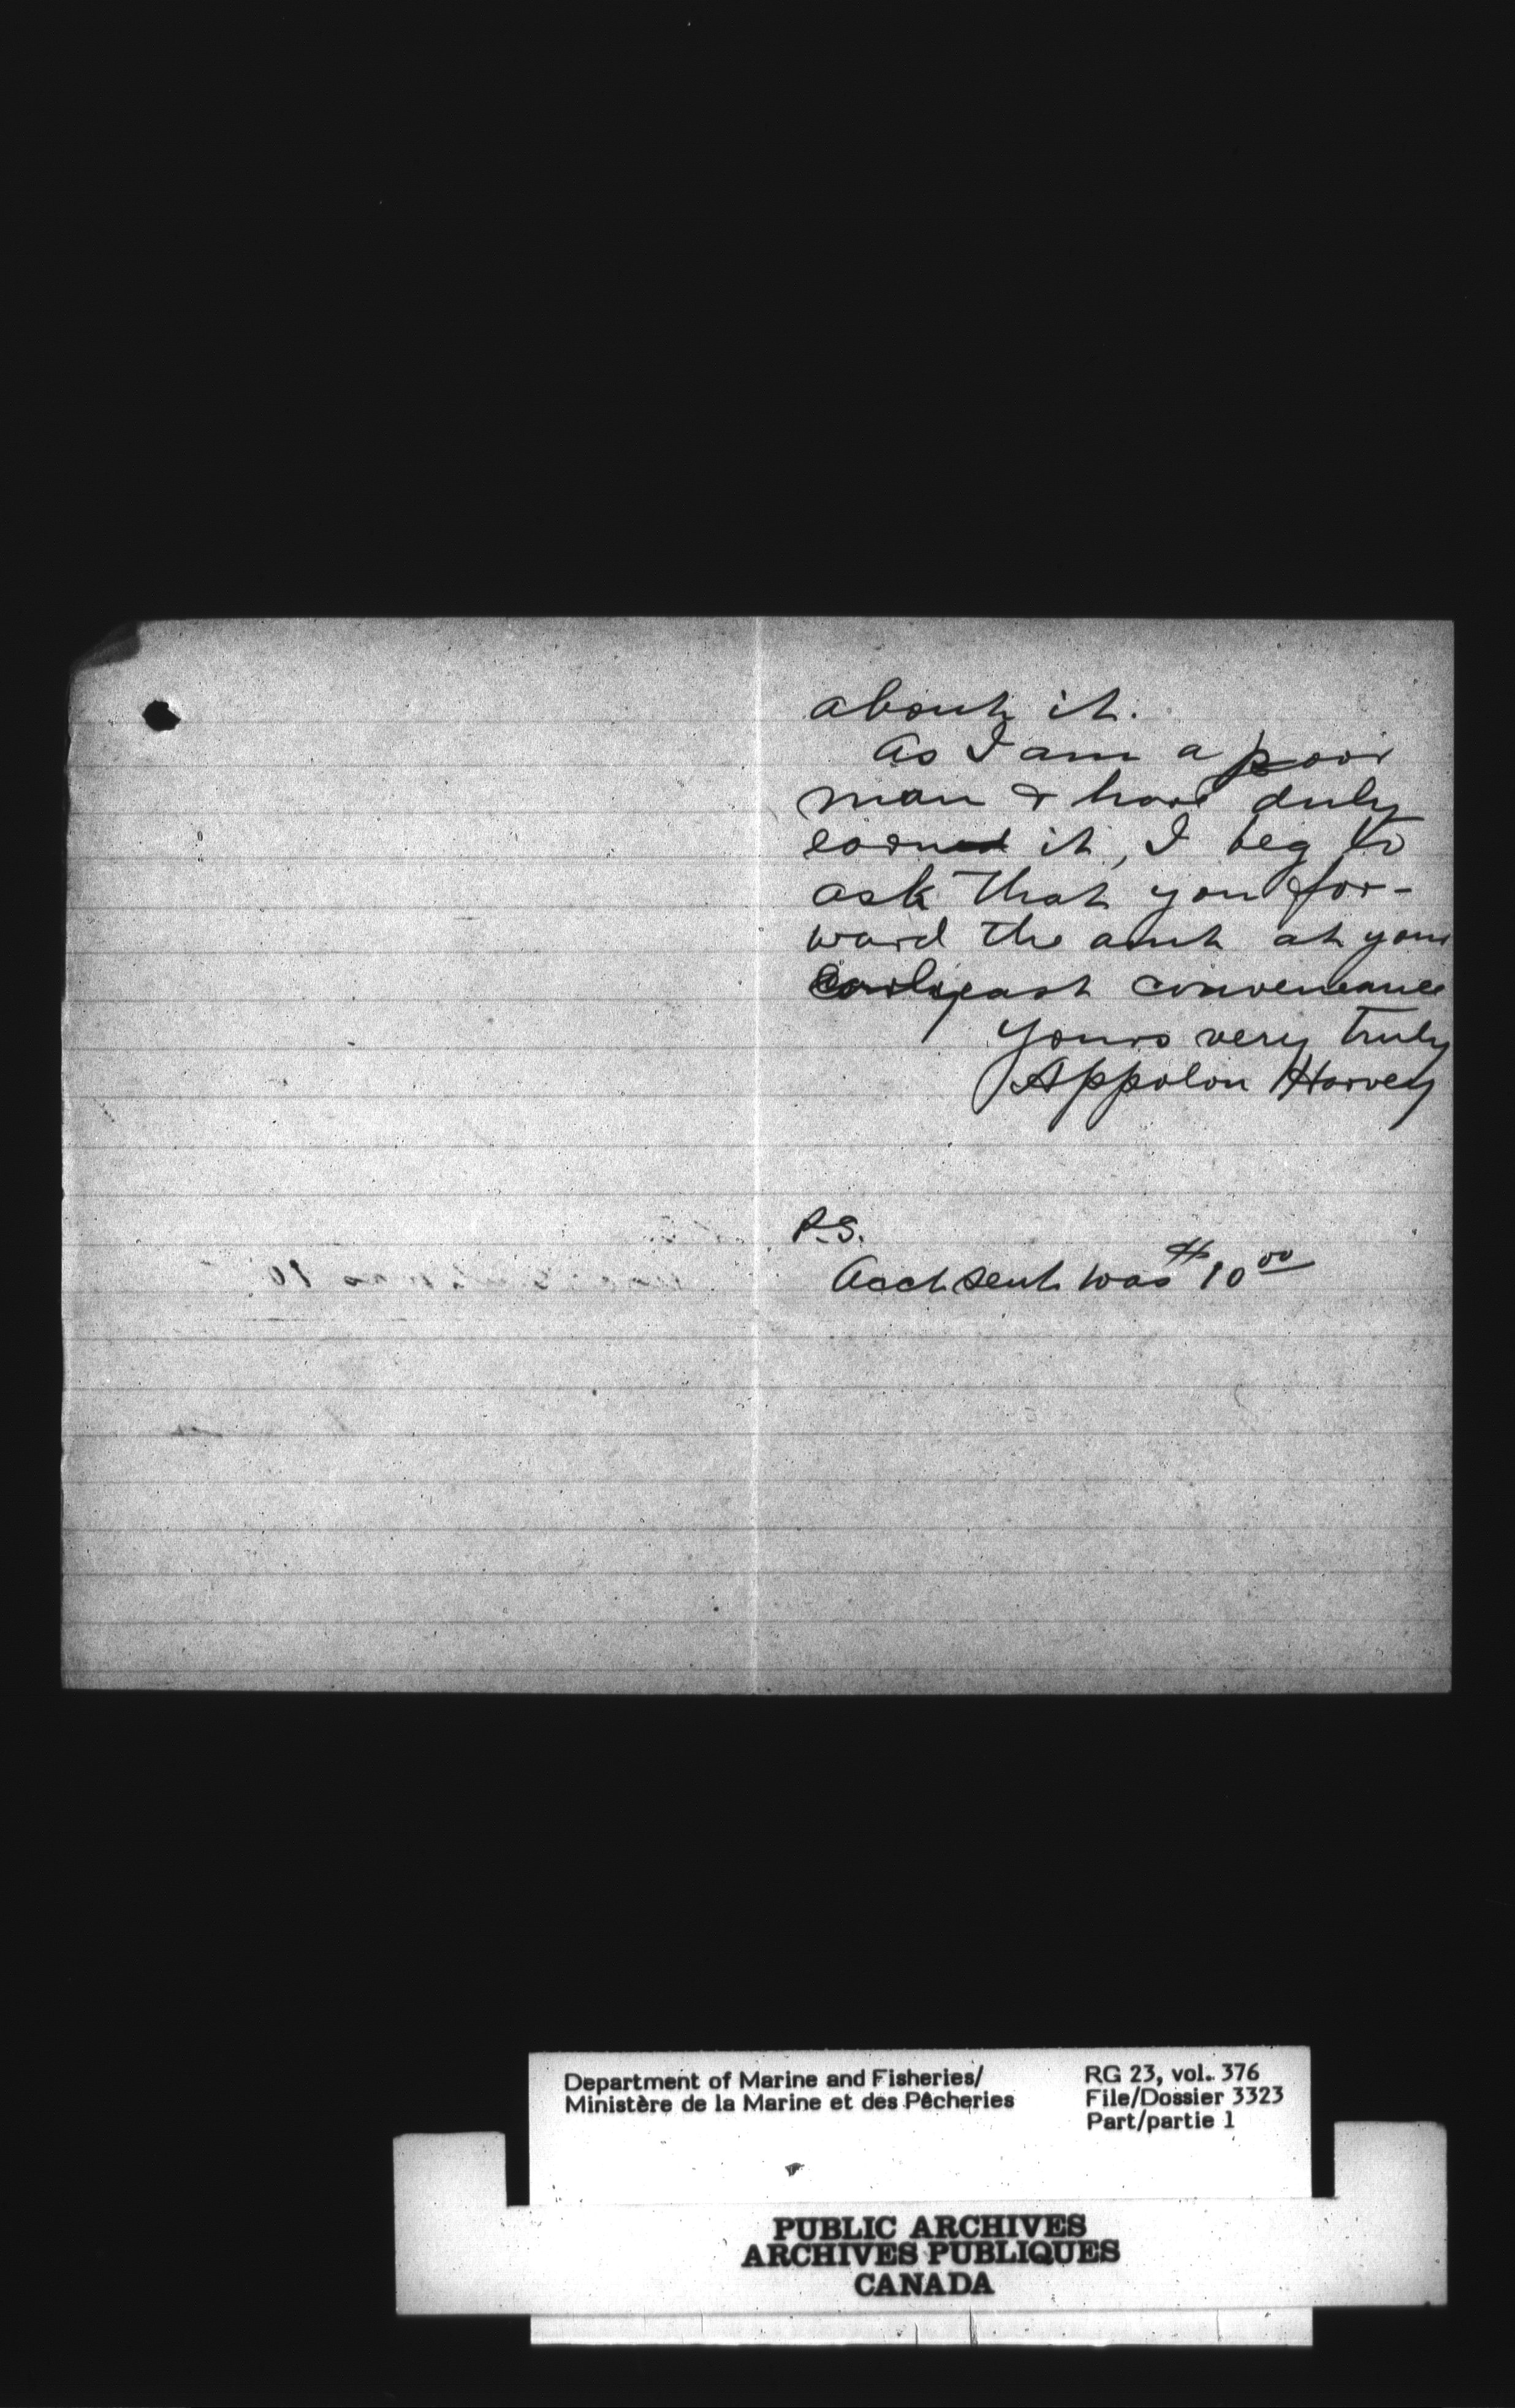 about it.
As I am a poor
man & have duly
earned it, I beg to
ask that you for-
ward the amt at your
earliyeast conveneance
Yours very truly
Appolon Harvey
P.S.
Acct sent was $10 00
Department of Marine and Fisheries/
Ministère de la Marine et des Pêcheries
RG 23, vol. 376
File/Dossier 3323
Part/partie 1
PUBLIC ARCHIVES
ARCHIVES PUBLIQUES
CANADA